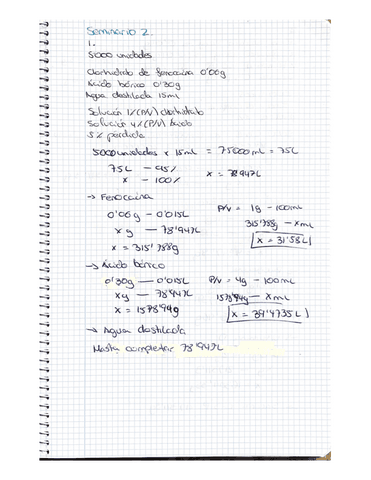 Seminario 2.
1.
5000 unidades
Clorhidrato de fenocaina 0'06g
Ácido bórico 0'30g
Agua destilada 15ml
Solución 1% (P/V) clorhidrato
Solución 4% (P/V) Ácido
5% pérdida
5000 unidades x 15mL = 75000mL = 75L
75L — 95%
x — 100% x = 78'947L
→ Fenocaina
0'06g — 0'015L P/V = 1g — 100mL
xg — 78'947L 315'788g — x mL
x = 315'788g x = 31'58L
→ Ácido bórico
0'30g — 0'015L P/V = 4g — 100mL
xg — 78'947L 1578'94g — x mL
x = 1578'94g x = 39'4735L
→ Agua destilada
Hasta completar 78'947L